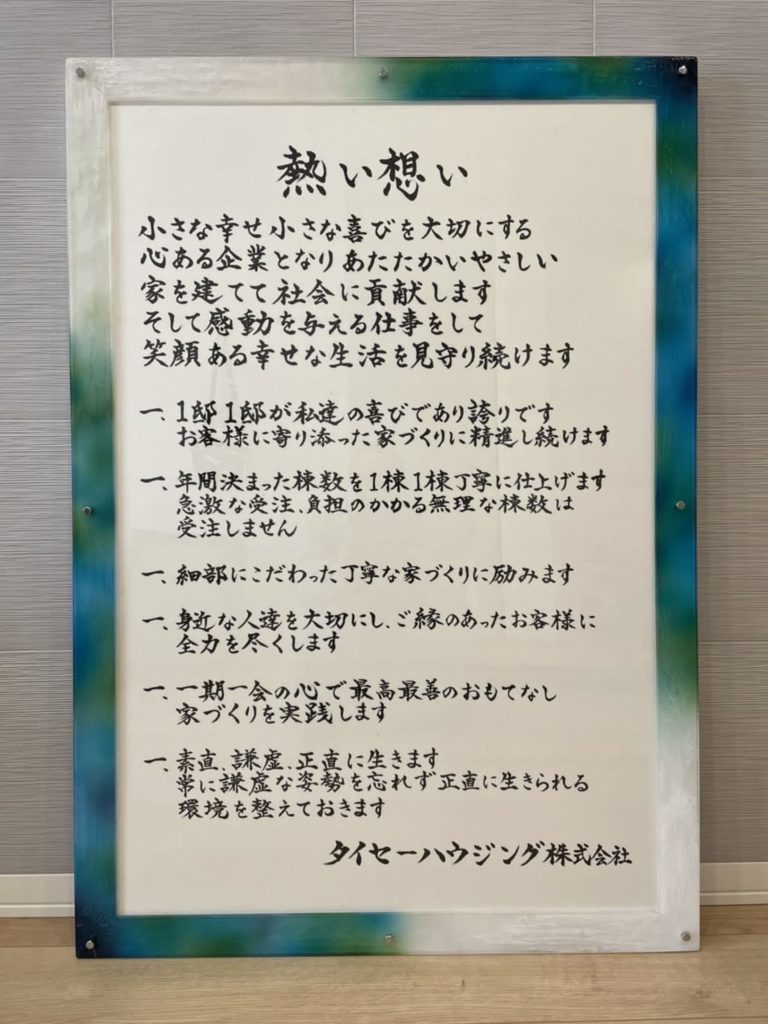 熱い想い
小さな幸せ小さな喜びを大切にする
心ある企業となりあたたかいやさしい
家を建てて社会に貢献します
そして感動を与える仕事をして
笑顔ある幸せな生活を見守り続けます
一、1邸1邸が私達の喜びであり誇りです
お客様に寄り添った家づくりに精進し続けます
一、年間決まった棟数を1棟1棟丁寧に仕上げます
急激な受注、負担のかかる無理な棟数は
受注しません
一、細部にこだわった丁寧な家づくりに励みます
一、身近な人達を大切にし、ご縁のあったお客様に
全力を尽くします
一、一期一会の心で最高最善のおもてなし
家づくりを実践します
一、素直、謙虚、正直に生きます
常に謙虚な姿勢を忘れず正直に生きられる
環境を整えておきます
タイセーハウジング株式会社